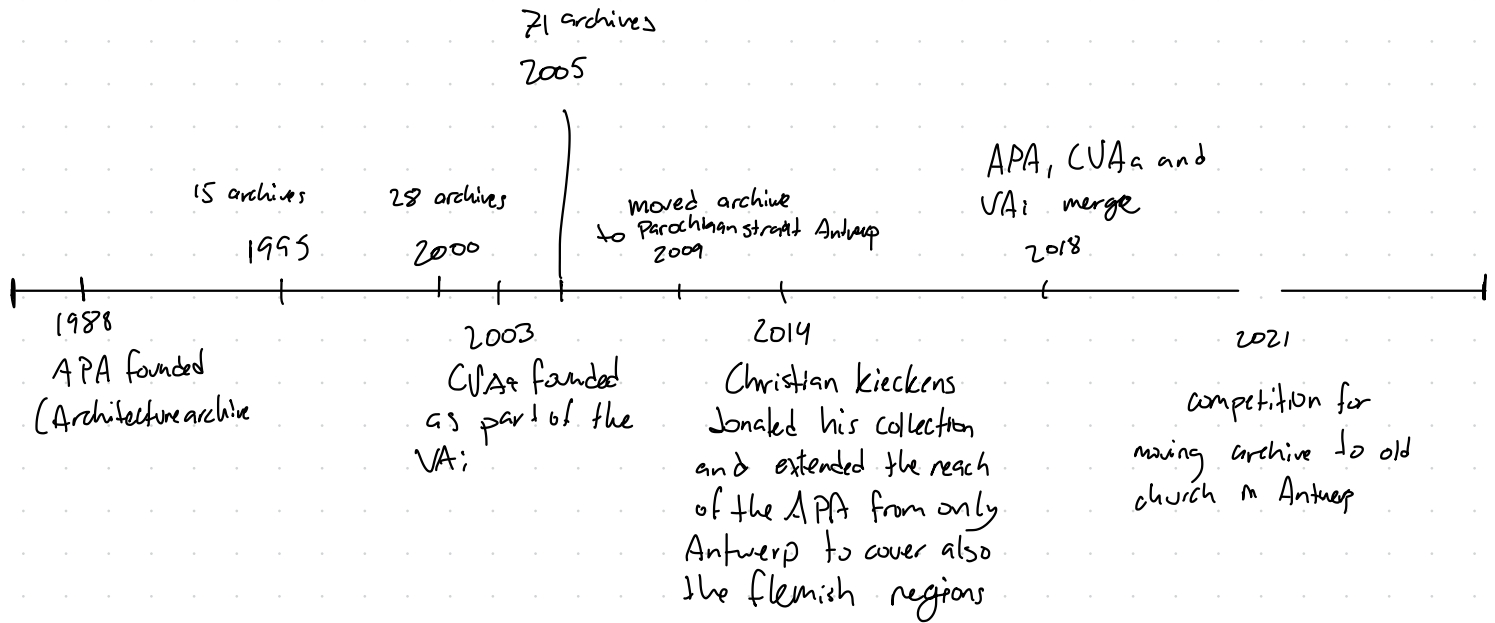 71 archives
2005
15 archives
1995
28 archives
2000
moved archive
to Parochiaanstraat Antwerp
2009
APA, CVAa and
VAi merge
2018
1988
APA founded
(Architecturearchive
2003
CVAa founded
as part of the
VAi
2014
Christian kieckens
donated his collection
and extended the reach
of the APA from only
Antwerp to cover also
the flemish regions
2021
competition for
moving archive to old
church in Antwerp